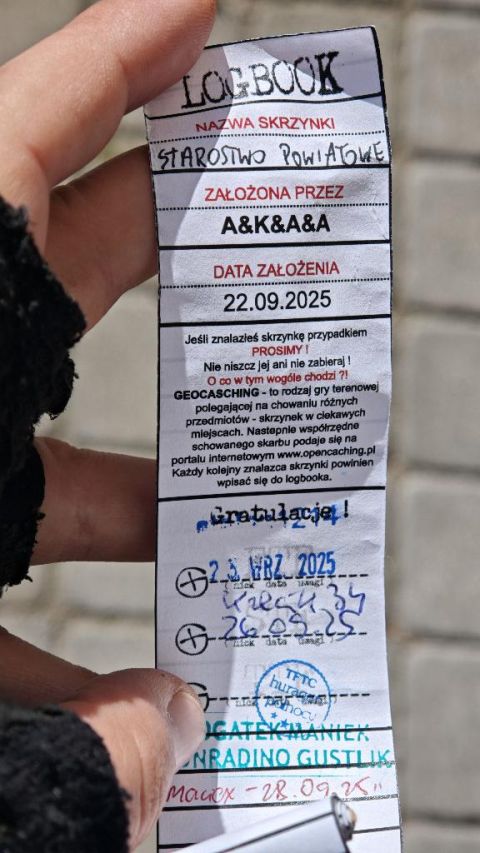 LOGBOOK
NAZWA SKRZYNKI
STAROSTWO POWIATOWE
ZAŁOŻONA PRZEZ
A&K&A&A
DATA ZAŁOŻENIA
22.09.2025
Jeśli znalazłeś skrzynkę przypadkiem
PROSIMY !
Nie niszcz jej ani nie zabieraj !
O co w tym wogóle chodzi ?!
GEOCASCHING - to rodzaj gry terenowej
polegającej na chowaniu różnych
przedmiotów - skrzynek w ciekawych
miejscach. Następnie współrzędne
schowanego skarbu podaje się na
portalu internetowym www.opencaching.pl
Każdy kolejny znalazca skrzynki powinien
wpisać się do logbooka.
Gratulacje !
23 WRZ 2025
( nick data uwagi )
34
26.09.25
( nick data uwagi )
TFTC
huragan
północy
MANIEK
GUSTLIK
- 28.09.25"